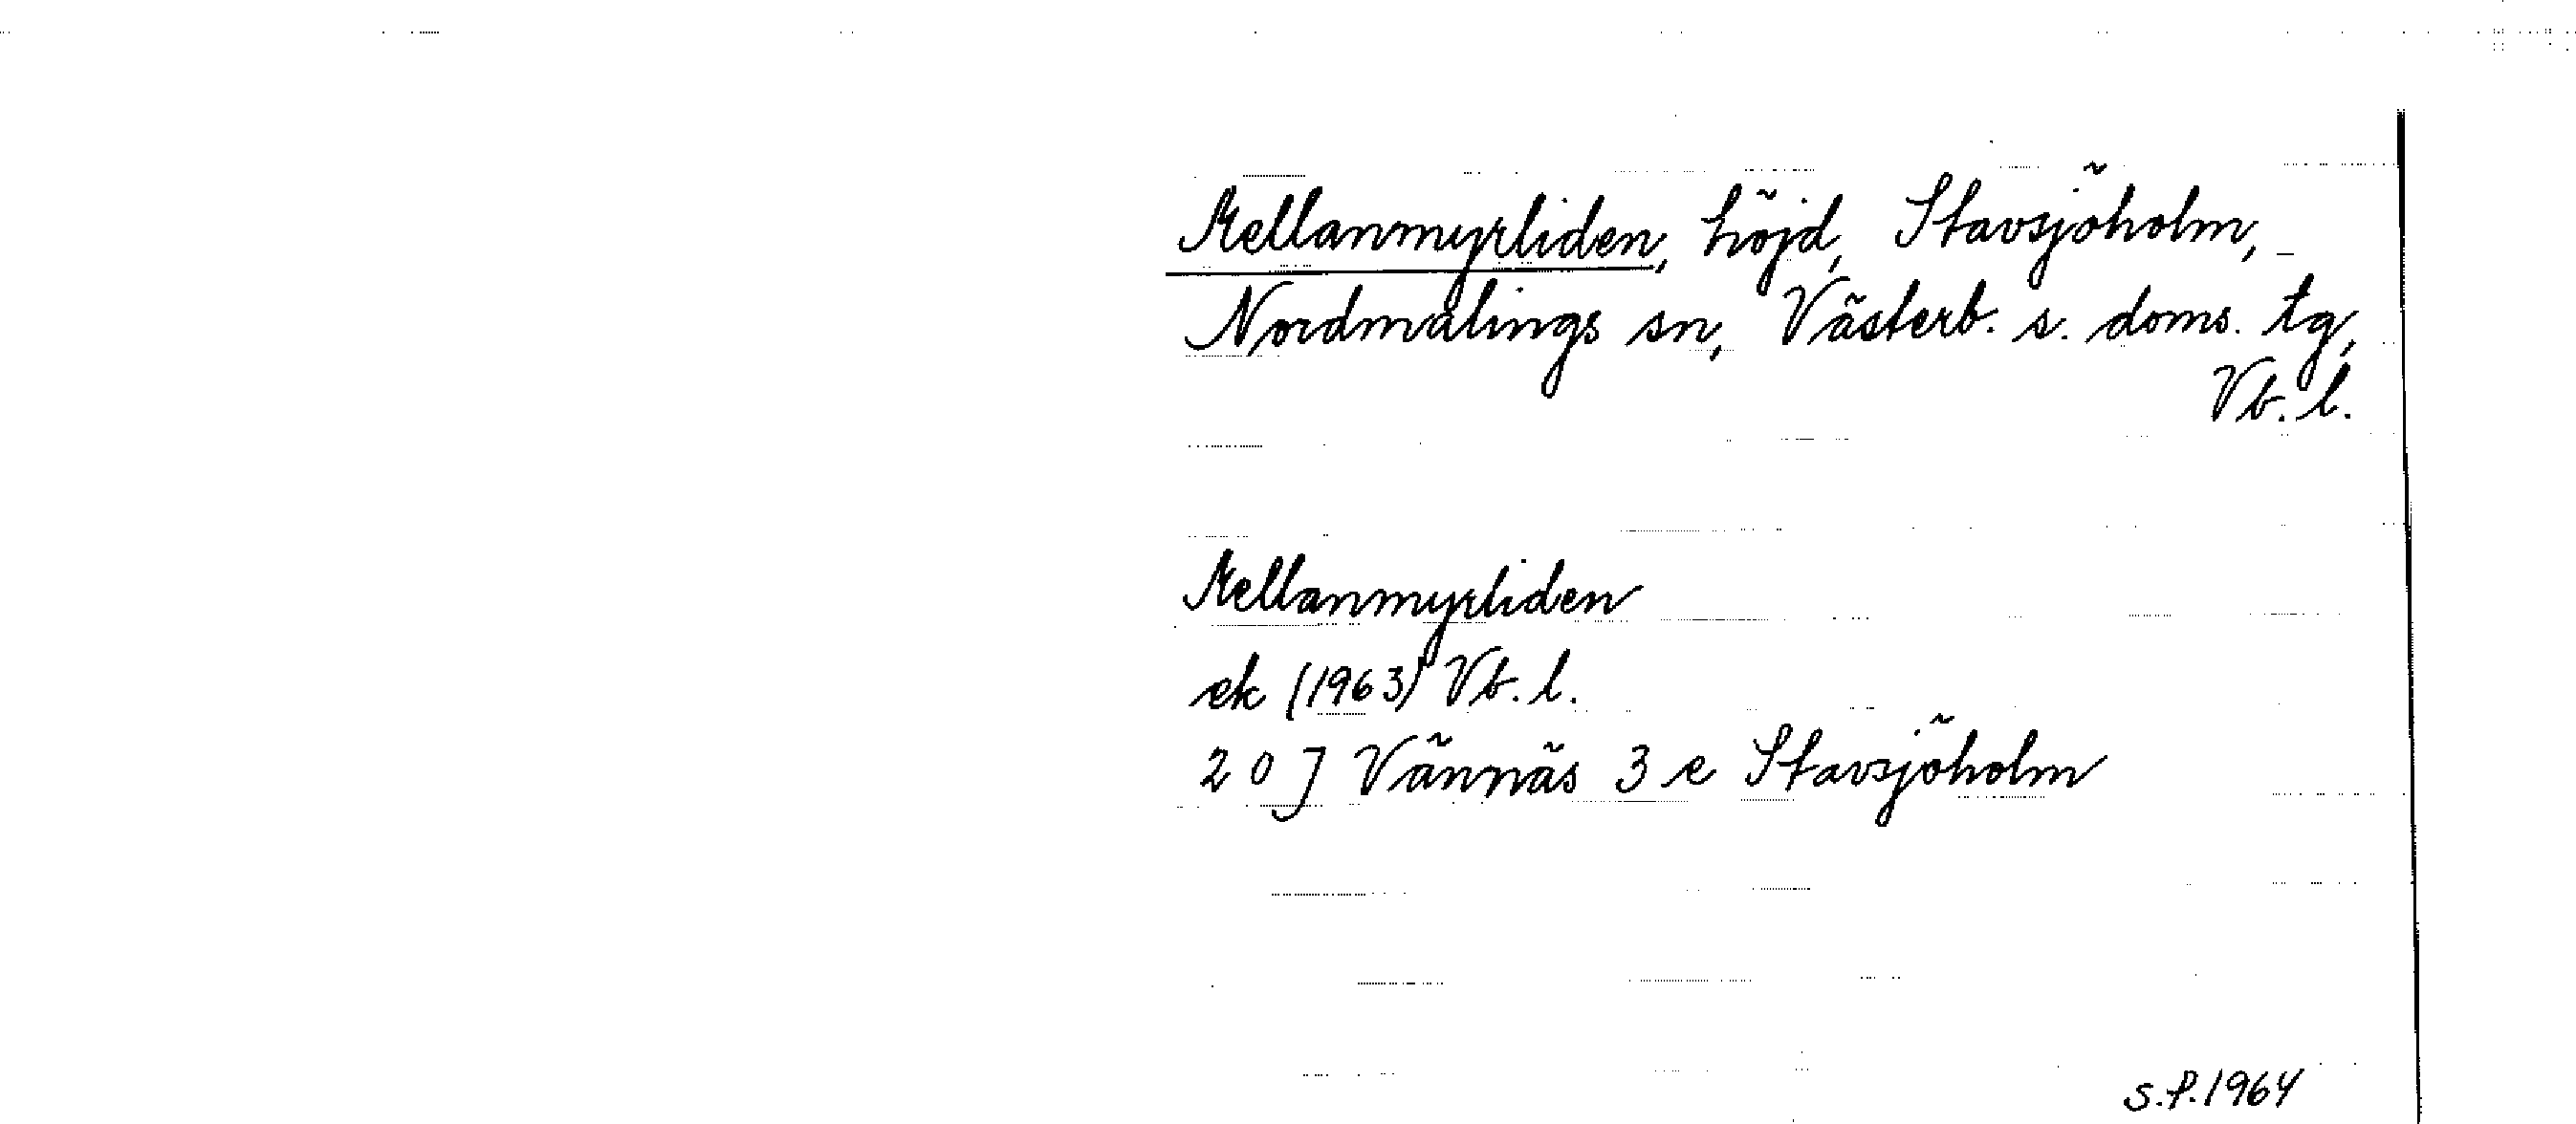 Mellanmyrliden, höjd, Stavsjöholm,
Nordmalings sn, Västerb. s. doms. tg,
Vb. l.
Mellanmyrliden
ek (1963) Vb. l.
20 J Vännäs 3 e Stavsjöholm
S.P. 1964